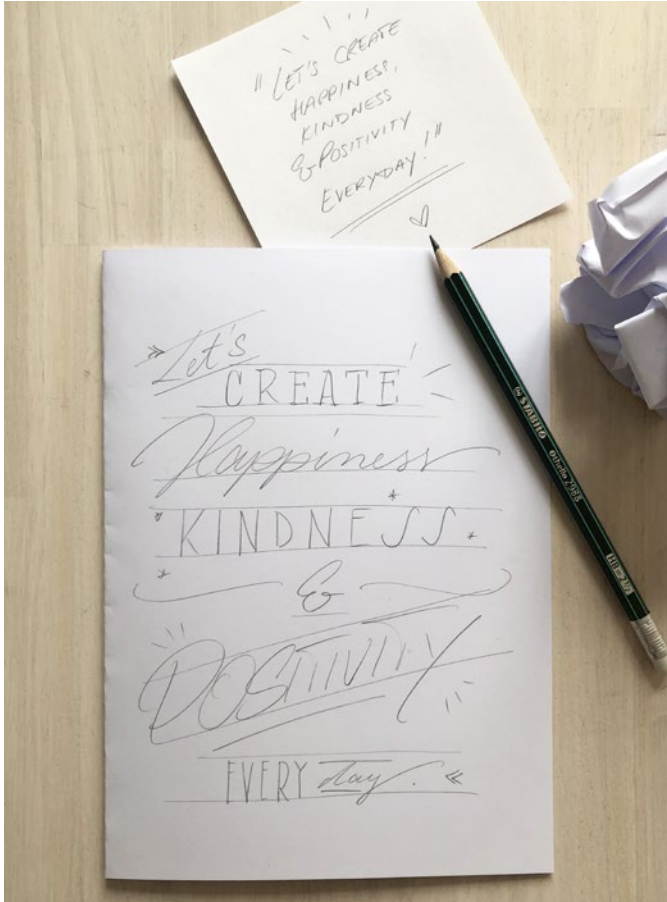 "LET'S CREATE
HAPPINESS,
KINDNESS
& POSITIVITY
EVERYDAY!"
«Let's
CREATE
Happiness
KINDNESS
&
POSITIVITY
EVERY day. «
STABILO Othello 2988 HB=2½